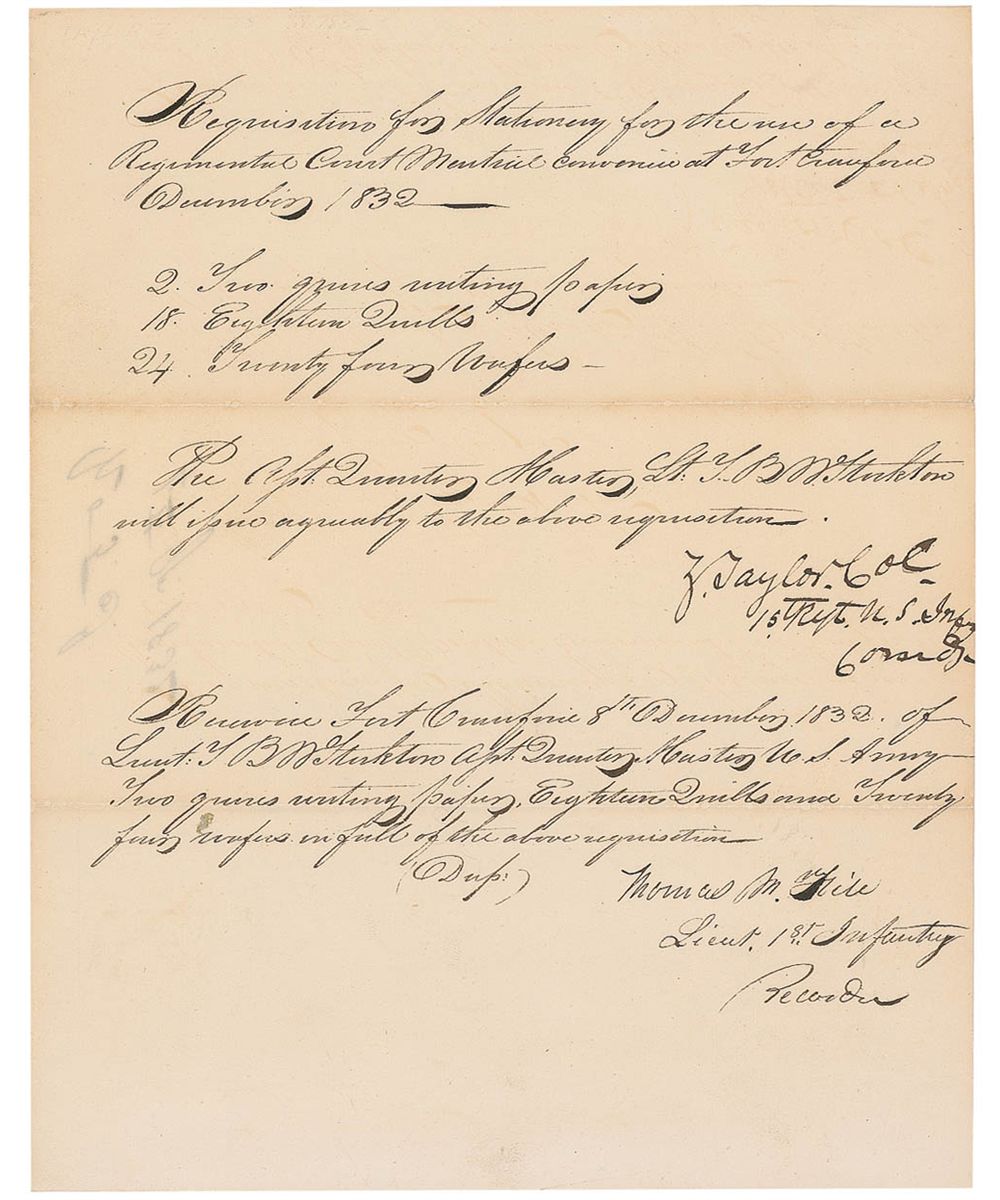 Requisition for Stationery for the use of a
Regimental Court Martial convened at Fort Crawford
December 1832
2. Two quires writing paper
18. Eighteen Quills
24 Twenty four Wafers –
The Asst. Quarter Master, Lt. T. B. W. Stockton
will issue agreeably to the above requisition.
Z. Taylor. Col.
1st Regt. U. S. Infy
Comdg
Received Fort Crawford 8th December 1832. of
Lieut. T B W Stockton Asst. Quarter Master U. S. Army
Two quires writing paper, Eighteen Quills and Twenty
four wafers in full of the above requisition
(Dup:)
Thomas M.
Lieut. 1st. Infantry
Recorder